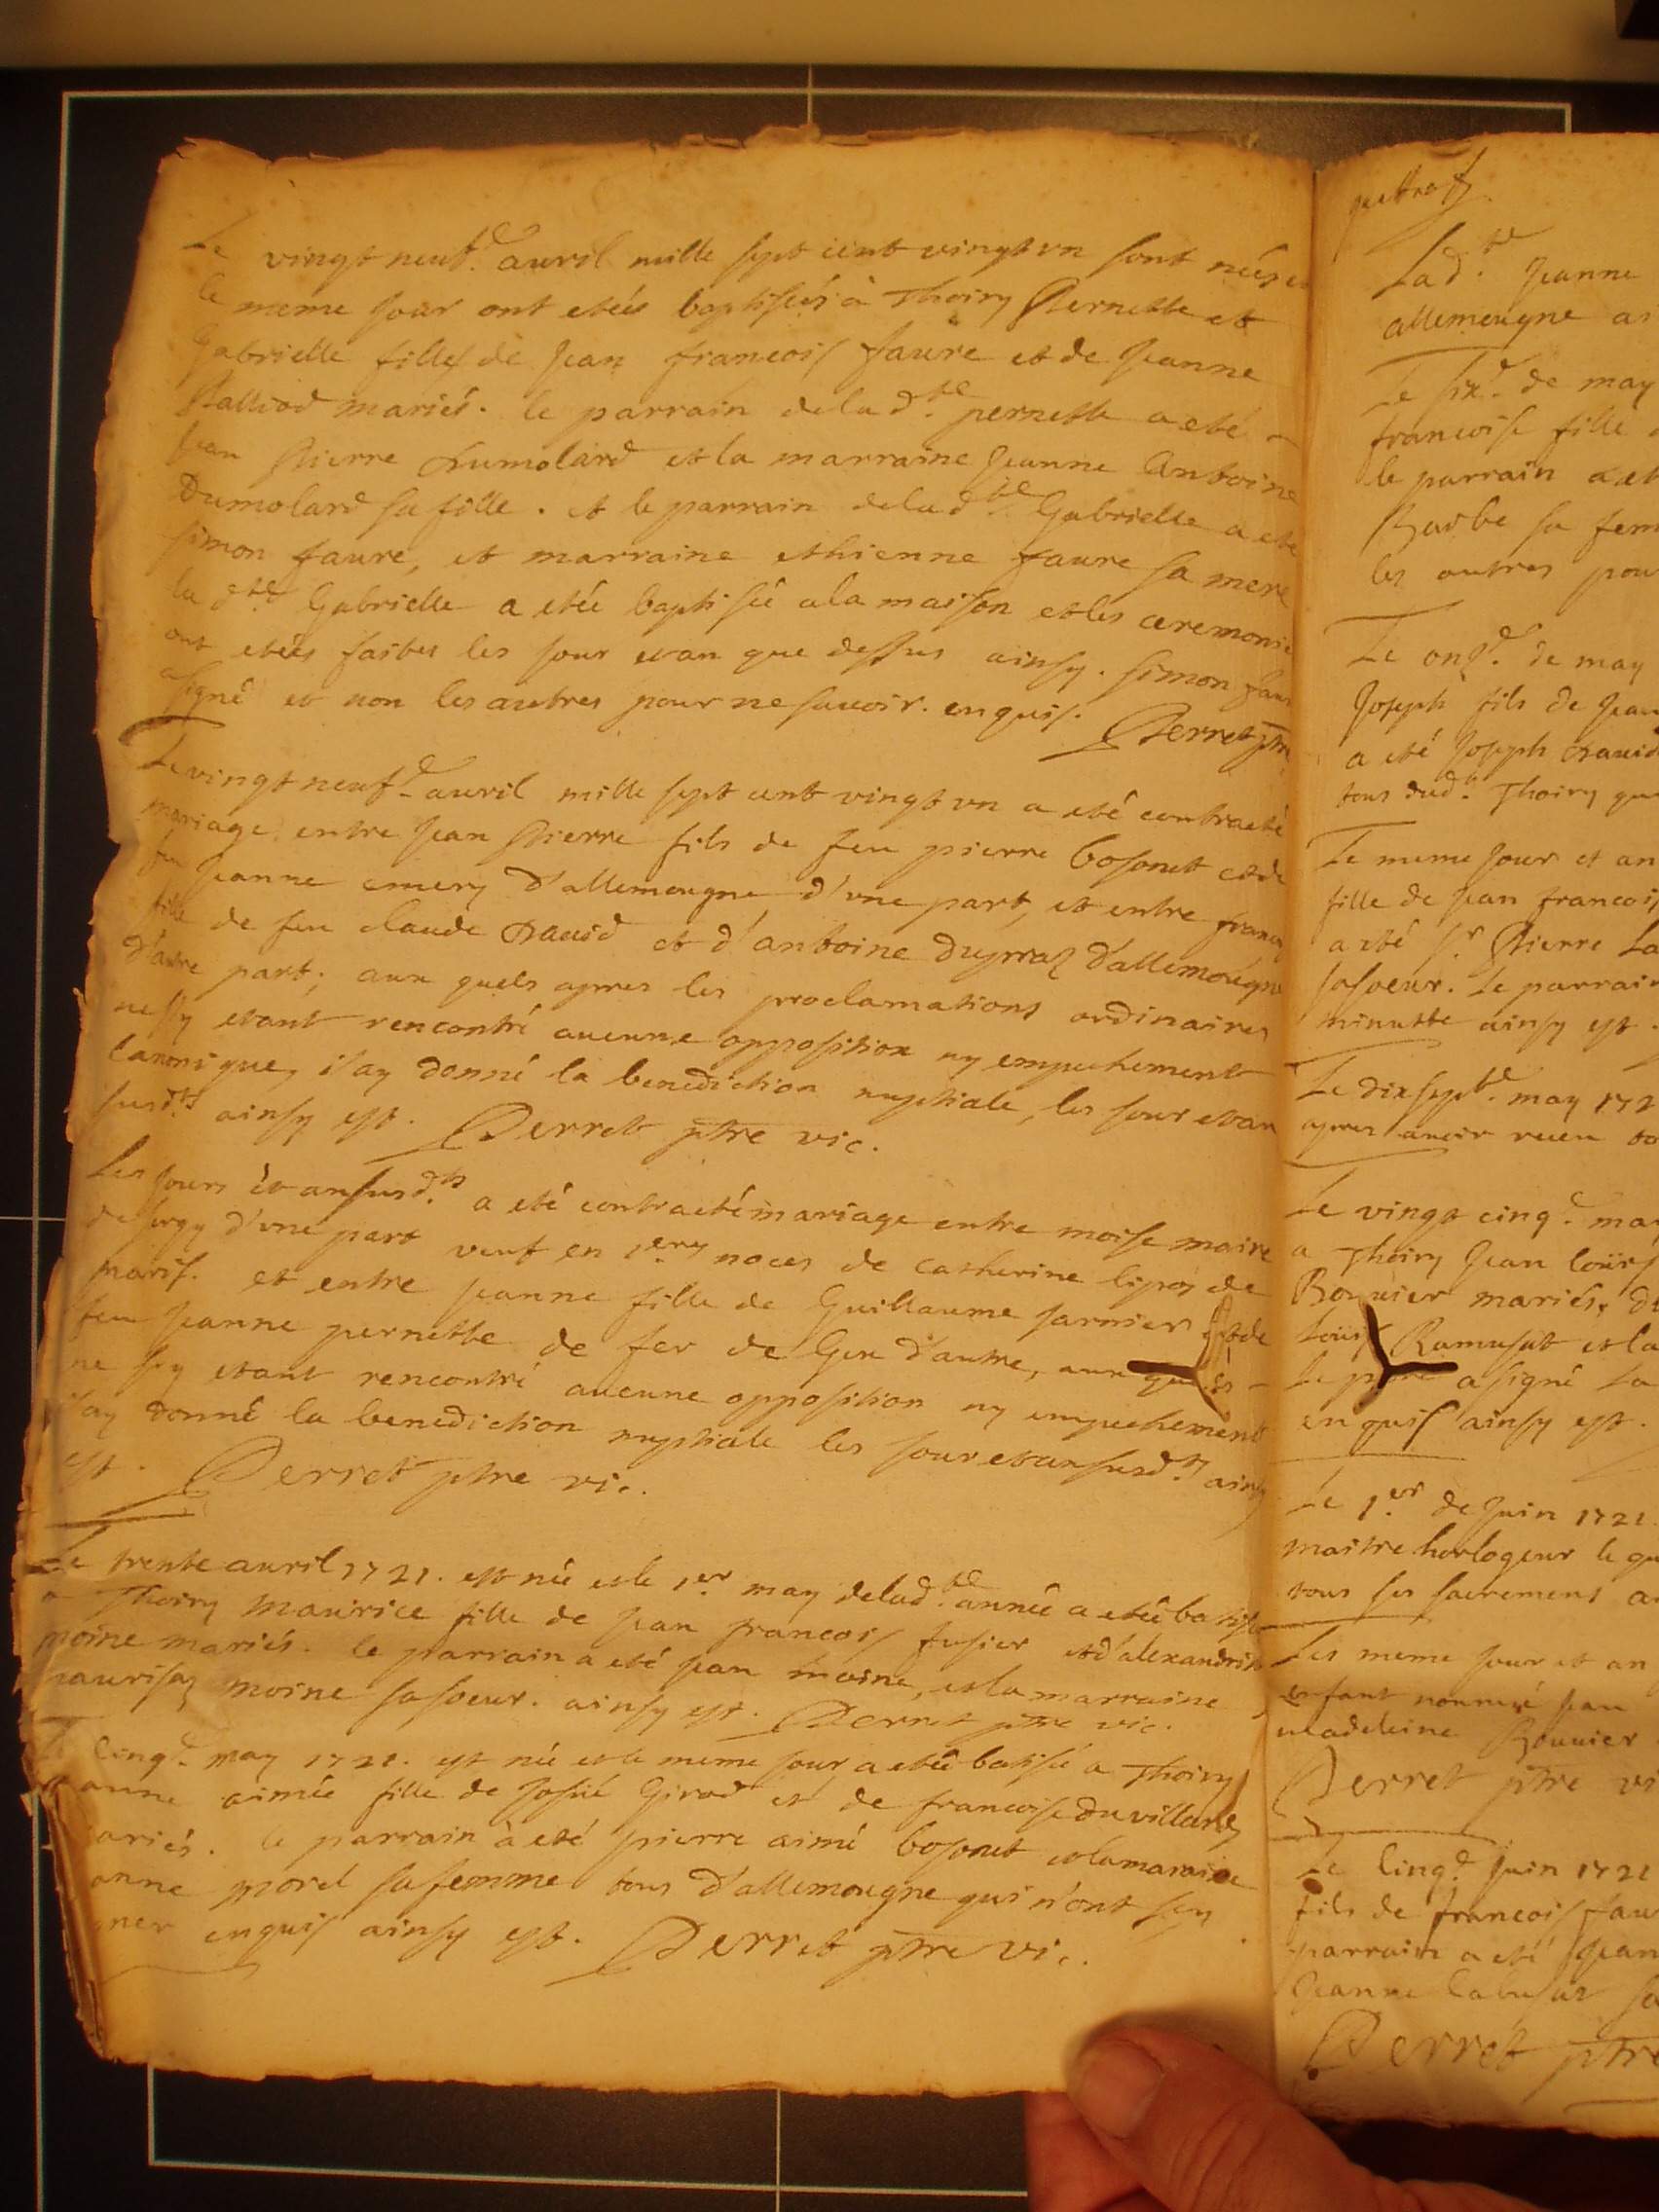 Le vingt neuf.e auril mille sept cent vingt vn sont nées et
le meme jour ont etées baptisées à Thoiry Pernette et
Gabrielle filles de jean francois faure et de jeanne
Palliod mariés. le parrain delad.te pernette a eté
jean Pierre Dumolard et la marraine jeanne Antoine
Dumolard sa fille. et le parrain delad.te Gabrielle a eté
simon faure, et marraine ethienne faure sa mere
la d.te Gabrielle a etée baptisée ala maison et les ceremonie
ont etées faites les jour etan que dessus ainsy. simon faur
asigné et non les autres pour ne sauoir. enquis. Perret ptre
Le vingt neuf.e auril mille sept cent vingt vn a eté contracté
mariage entre jean Pierre fils de feu pierre bosonet et de
feu jeanne emery d'allemougne d'vne part, et entre franc
fille de feu claude Dauid et d'antoine dupraz d'allemougne
d'autre part; aux quels apres les proclamations ordinaires
ne sy etant rencontré aucunne opposition ny empechement
canonique, j'ay donné la benediction nuptiale, les jour etan
susd.ts ainsy est. Perret ptre vic.
Les jours et an susd.ts a eté contracté mariage entre moise maire
de sergy d'vne part veuf en 1.eres noces de catherine de
paris. et entre jeanne fille de Guillaume jarnier et de
feu jeanne pernette de fer de Gex d'autre, aux quels
ne sy etant rencontré aucunne opposition ny empechement
j'ay donné la benediction nuptiale les jour etan susd.ts ainsy
est. Perret ptre vic.
Le trente auril 1721. est née et le 1.er may delad.te année a etée batisé
a Thoiry maurice fille de jean francois fusier et d'alexandrin
moine mariés. le parrain a eté jean moine, et la marraine
maurisaz moine sa soeur. ainsy est. Perret ptre vic.
Le cinq.e may 1721. est née et le meme jour a etée batisée a Thoiry
anne aimée fille de josué Girod et de francoise du villard
ariés. le parrain à eté pierre aimé bosonet et la maraine
anne morel sa femme tous d'allemougne qui n'ont seu
gner enquis ainsy est. Perret ptre vic.
Lad.te jeanne
allemougne
Le six.e de may
francoise fille
le parrain a et
Barbe sa fem
les autres pour
Le onz.e de may
joseph fils de jean
a eté joseph Dauid
tous dud.t Thoiry qui
Le meme jour et an
fille de jean francois
a eté s.r Pierre La
sa soeur. Le parrain
minutte ainsy est.
Le dix sept.e may 172
apres auoir receu to
Le vingt cinq.e may
a Thoiry jean loüis
Bouuier mariés.
Loüis Ramusat et la
Le asigné La
enquis ainsy est.
Le 1.er de juin 1721
maitre horlogeur le qu
tous ses sacrements
Les meme jour et an
enfant nommé jean
madeleine Bouuier
Perret ptre vi
Le cinq.e juin 1721
fils de francois faur
parrain a eté jean
jeanne sa
Perret ptre